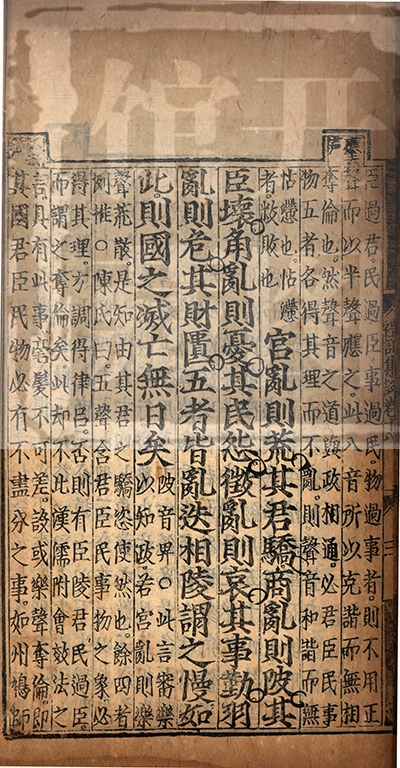 臣過君民過臣事過民物過事者則不用正
聲而以半聲應之此八音所以克諧而無相
奪倫也然聲音之道與政相通必君臣民事
物五者各得其理而不亂則聲音和諧而無
怗懘也怗懘
者敝敗也
宮亂則荒其君驕商亂則陂其
臣壞角亂則憂其民怨徵亂則哀其事勤羽
亂則危其財匱五者皆亂迭相陵謂之慢如
此則國之滅亡無日矣
陂音畀○此言審樂
以知政若宮亂則樂
聲荒散是知由其君之驕恣使然也餘四者
例推○陳氏曰五聲含君臣民事物之象必
得其理方調得律呂否則有臣陵君民過臣
而謂之奪倫矣此却不比漢儒附會效法之
言具有此事毫髮不可差設或樂聲奪倫即
其國君臣民物必有不盡分之事如州鳩師